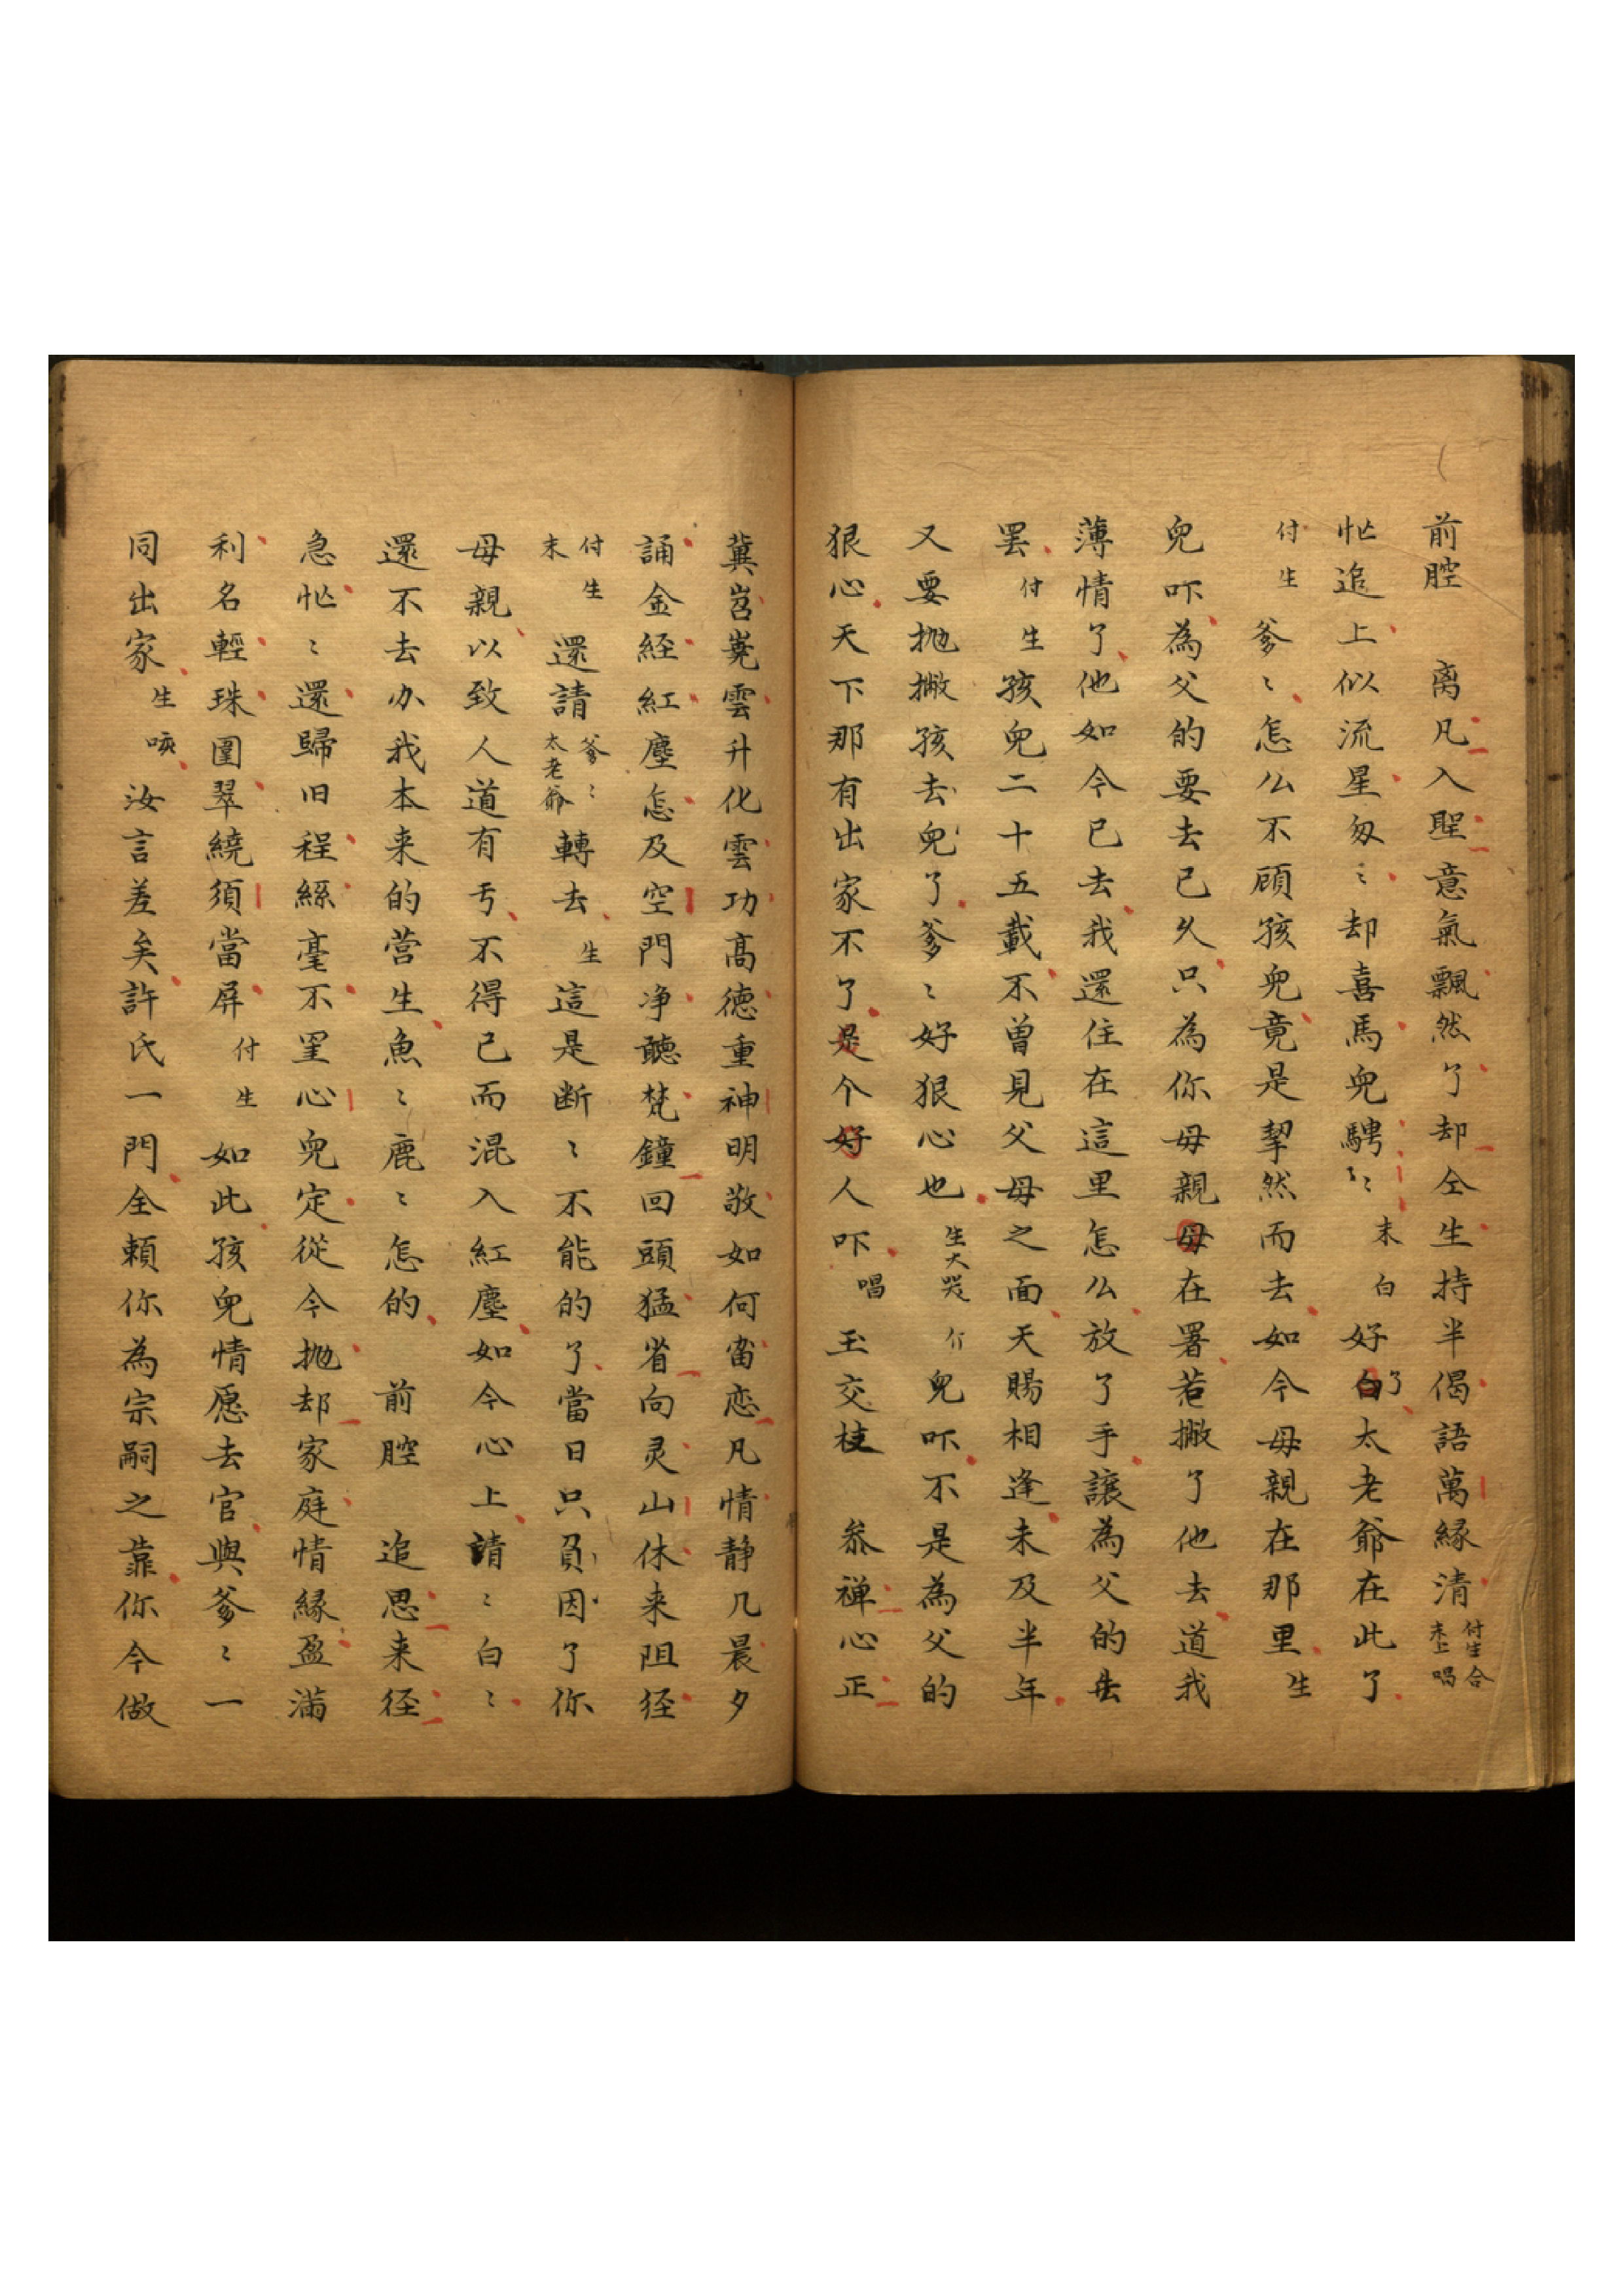 前腔　离凡入聖意氣飄然了却仝生持半偈語萬緣清付生合末上唱
忙追上似流星匆〻却喜馬兒騁〻末白好了太老爺在此了
付生爹〻怎么不顧孩兒竟是挈然而去如今母親在那里生
兒吓為父的要去已久只為你母親在署若撇了他去道我
薄情了他如今已去我還住在這里怎么放了手讓為父的去
罢付生孩兒二十五載不曾見父母之面天賜相逢未及半年
又要抛撇孩去兒了爹〻好狠心也生大哭介兒吓不是為父的
狠心天下那有出家不了是个好人吓唱玉交枝　叅禅心正
冀岧嶤雲升化雲功高德重神明敬如何畱恋凡情静几晨夕
誦金経紅塵怎及空門净聽梵鐘回頭猛省向灵山休来阻径
付生末還請爹〻太老爺轉去生這是断〻不能的了當日只負因了你
母親以致人道有亏不得已而混入紅塵如今心上請〻白〻
還不去办我本来的营生魚〻鹿〻怎的　前腔　追思来径
急忙〻還歸旧程絲毫不罣心兒定從今抛却家庭情緣盈滿
利名輕珠圍翠繞須當屏付生如此孩兒情愿去官與爹〻一
同出家生咳汝言差矣許氏一門全賴你為宗嗣之靠你今做